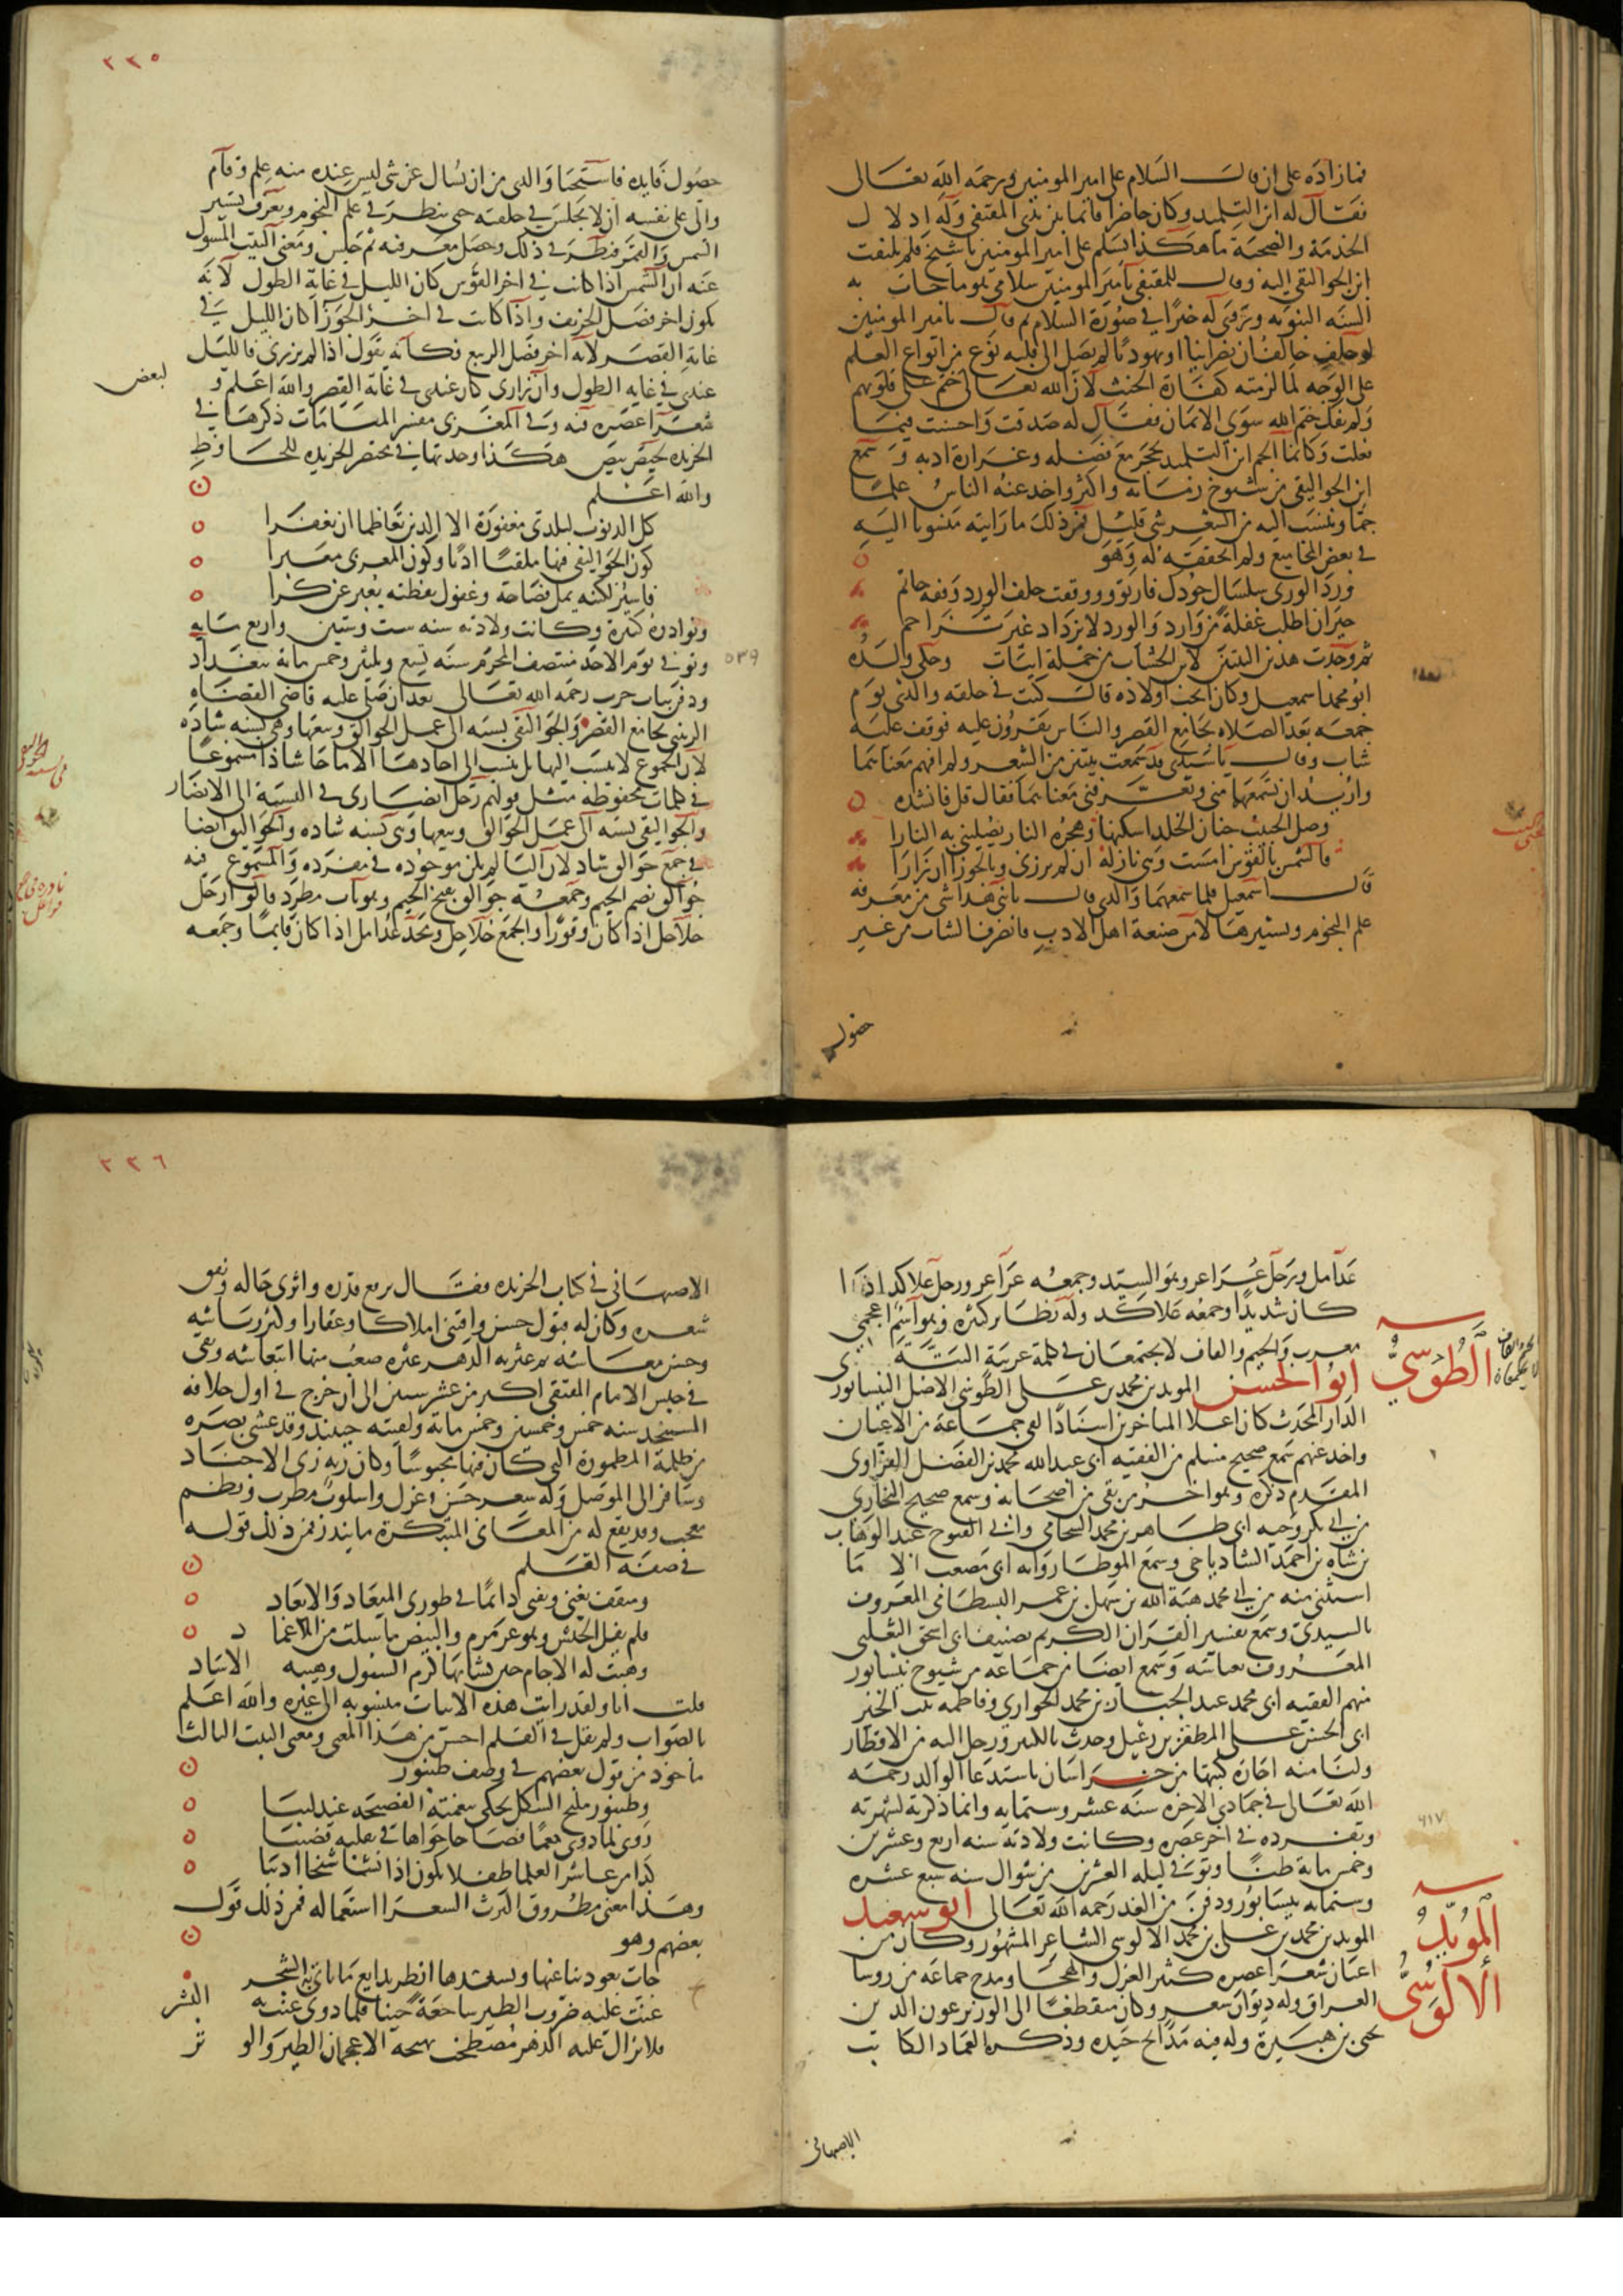 فما زاده على ان قال السلام على امير المومنين ورحمه الله تعالى
فقال له ابن التلميذ وكان حاضرا قائما بين يدي المقتفي وله ادلال
الخدمة والصحبة ما هكذا يسلم على امير المومنين يا شيخ فلم يلتفت
ابن الجواليقي اليه وقال للمقتفي يا مير المومنين سلامي هو ما جات به
السنه النبويه وروى له خبرا في صورة السلام ثم قال يا مير المومنين
لو حلف حالف ان نصرانيا او يهوديا لم يصل الى قلبه نوع من انواع العلم
على الوجه لما لزمته كفارة الحنث لان الله تعالى ختم على قلوبهم
ولم يفك ختم الله سوى الايمان فقال له صدقت واحسنت فيما
فعلت وكانما الجم ابن التلميذ بحجر مع فضله وغزارة ادبه وسمع
ابن الجواليقي من شيوخ زمانه واكثر واخذ عنه الناس علما
جما وينسب اليه من الشعر شي قليل فمن ذلك ما رايته منسوبا اليه
في بعض المجاميع ولم اتحققه له وهو
ورد الورى سلسال جودك فارتووا ووقفت خلف الورد وقفة حائم
حيران اطلب غفلة من وارد والورد لا يزداد غير تزاحم
ثم وجدت هذين البيتين لابن الخشاب من جملة ابيات وحكى ولده
ابو محمد اسمعيل وكان انجب اولاده قال كنت في حلقه والدي يوم
جمعه بعد الصلاه بجامع القصر والناس يقرون عليه فوقف عليه
شاب وقال يا سيدي قد سمعت بيتين من الشعر ولم افهم معناهما
واريد ان تسمعهما مني وتعرفني معناهما فقال قل فانشده
وصل الحبيب جنان الخلد اسكنها وهجره النار يصليني به النارا
فالشمس بالقوس امست وهي نازلة ان لم يزرني وبالجوزا ان زارا
قال اسمعيل فلما سمعهما والدي قال يا بني هذا شي من معرفه
علم النجوم وتسييرها لا من صنعة اهل الادب فانصرف الشاب من غير
حصول
٢٣٥
حصول فايده فاستحيا والدي من ان يسال عن شي ليس عنده منه علم وقام
والى على نفسه ان لا يجلس في حلقته حتى ينظر في علم النجوم ويعرف تسيير
الشمس والقمر فنظر في ذلك وحصل معرفته ثم جلس ومعنى البيت المسول
عنه ان الشمس اذا كانت في اخر القوس كان الليل في غاية الطول لانه
يكون اخر فصل الخريف واذا كانت في اخر الجوزا كان الليل في
غاية القصر لانه اخر فصل الربيع فكانه يقول اذا لم يزرني فالليل
عندي في غايه الطول وان زارني كان عندي في غاية القصر والله اعلم و
لبعض
شعرا عصره فيه وفي المغربي مفسر المنامات ذكرها في
الخريده لحيص بيص هكذا وجدتها في مختصر الخريده للحافظ
والله اعلم
كل الذنوب لبلدتي مغفورة الا اللذين تعاظما ان يغفرا
كون الجواليقي فيها ملقيا ادبا وكون المغربي معبرا
فاسير لكنته يمل فصاحة وغفول يقظته يعبر عن كرا
ونوادره كثيرة وكانت ولادته سنه ست وستين واربع مايه
وتوفي يوم الاحد منتصف المحرم سنه تسع وثلثين وخمس مايه ببغداد
٥٣٩
ودفن بباب حرب رحمه الله تعالى بعد ان صلى عليه قاضي القضاه
الزينبي بجامع القصر والجواليقي نسبه الى عمل الجوالق وبيعها وهي نسبه شاذه
لان الجموع لا ينسب اليها بل ينسب الى احادها الا ما جا شاذا مسموعا
في كلمات محفوظة مثل قولهم رجل انصاري في النسبة الى الانصار
والجواليقي نسبه الى عمل الجوالق وبيعها وهي نسبه شاذه والجواليق ايضا
في جمع جوالق شاذ لان اليا لم يكن موجوده في مفرده والمسموع فيه
جوالق بضم الجيم وجمعه جوالق بفتح الجيم وهو باب مطرد قالوا رجل
حلاحل اذا كان وقورا والجمع حلاحل وشجر عدامل اذا كان قديما وجمعه
عدامل ورجل عراعر وهو السيد وجمعه عراعر ورجل علاكد اذا
كان شديدا وجمعه علاكد وله نظاير كثيره وهو اسم اعجمي
معرب والجيم والقاف لا يجتمعان في كلمة عربية البتة
الطوسي
ابو الحسن المويد بن محمد بن علي الطوسي الاصل النيسابوري
الدار المحدث كان اعلا المتاخرين اسنادا لقي جماعة من الاعيان
واخذ عنهم سمع صحيح مسلم من الفقيه ابي عبد الله محمد بن الفضل الفراوي
المقدم ذكره وهو اخر من بقي من اصحابه وسمع صحيح البخاري
من ابي بكر وجيه ابي طاهر بن محمد الشحامي وابي الفتوح عبد الوهاب
بن شاه بن احمد الشادياخي وسمع الموطا رواية ابي مصعب الا ما
استثني منه من ابي محمد هبة الله بن سهل بن عمر البسطامي المعروف
بالسيدي وسمع تفسير القران الكريم تصنيف ابي اسحق الثعلبي
المعروف بعباسه وسمع ايضا من جماعه من شيوخ نيسابور
منهم الفقيه ابي محمد عبد الجبار بن محمد الخواري وفاطمه ام الخير
ابي الحسن علي المظفر بن زعبل وحدث بالكثير ورحل اليه من الاقطار
ولنا منه اجازة كتبها من خراسان باستدعا الوالد رحمه
الله تعالى في جمادى الاخره سنه عشر وستمايه وانما ذكرته لشهرته
٦١٧
وتفرده في اخر عصره وكانت ولادته سنه اربع وعشرين
وخمس ماية ظنا وتوفي ليله العشرين من شوال سنه سبع عشره
وستمايه بنيسابور ودفن من الغد رحمه الله تعالى ابو سعيد
المويد الالوسي
المويد بن محمد بن علي بن محمد الالوسي الشاعر المشهور وكان من
اعيان شعرا عصره كثير الغزل والهجا ومدح جماعه من روسا
العراق وله ديوان شعر وكان منقطعا الى الوزير عون الدين
يحيى بن هبيرة وله فيه مدايح جيده وذكره العماد الكاتب
الاصبهاني
٢٣٦
الاصبهاني في كتاب الخريده فقال ترفع قدره واثرى حاله ونفق
شعره وكان له قبول حسن واقتنى املاكا وعقارا وكثر رياشه
وحسن معاشه ثم عثر به الدهر عثره صعب منها انتعاشه وبقي
في حبس الامام المقتفي اكثر من عشر سنين الى ان خرج في اول خلافه
المستنجد سنه خمس وخمسين وخمس مايه ولقيته حينئذ وقد عشي بصره
من ظلمة المطمورة التي كان فيها محبوسا وكان زيه زي الاجناد
وسافر الى الموصل وله شعر حسن غزل واسلوب مطرب ونظم
معجب وقد يقع له من المعاني المبتكرة ما يندر فمن ذلك قوله
في صفة القلم
ومثقف يغني ويفني دائما في طوري الميعاد والايعاد
قلم يفل الجيش وهو عرمرم والبيض ما سلت من الاغماد
وهبت له الاجام حين نشا بها كرم السيول وهيبه الاساد
قلت انا ولقد رايت هذه الابيات منسوبه الى غيره والله اعلم
بالصواب ولم يقل في القلم احسن من هذا المعنى ومعنى البيت الثالث
ماخوذ من قول بعضهم في وصف طنبور
وطنبور مليح الشكل يحكي بنغمته الفصيحه عندليبا
روى لما ذوى نغما فصاحا حواها في تقلبه قضيبا
كذا من عاشر العلما طفلا يكون اذا نشا شيخا اديبا
وهذا معنى مطروق اكثر الشعرا استعماله فمن ذلك قول
بعضهم وهو
جات بعود يناغيها ويسعدها انظر بدايع ما ياتي به الشجر
غنت عليه ضروب الطير ساجعة حينا فلما ذوى غنت به البشر
فلا يزال عليه الدهر مصطخب يهيجه الاعجمان الطير والوتر